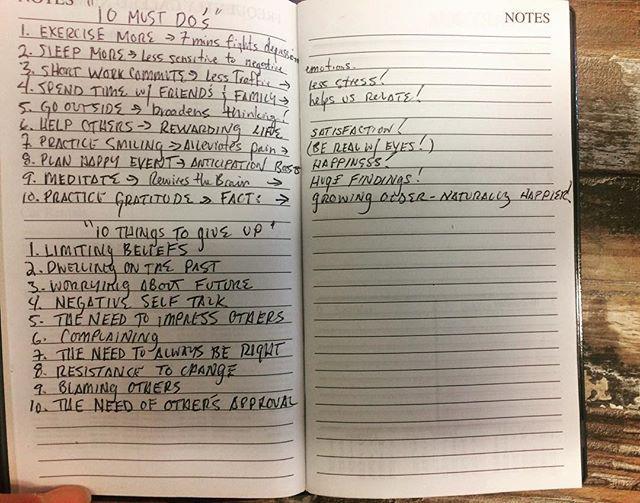 NOTES
"10 MUST DO'S"
1. EXERCISE MORE → 7 mins fights depression
2. SLEEP MORE → Less sensitive to negative
3. SHORT WORK COMMUTES → Less Traffic →
4. SPEND TIME W/ FRIENDS & FAMILY →
5. GO OUTSIDE → broadens thinking!
6. HELP OTHERS → REWARDING LIFE
7. PRACTICE SMILING → Alleviates Pain →
8. PLAN HAPPY EVENT → ANTICIPATION BOOSTS
9. MEDITATE → Rewires the Brain →
10. PRACTICE GRATITUDE → FACT: →
"10 THINGS TO GIVE UP"
1. LIMITING BELIEFS
2. DWELLING ON THE PAST
3. WORRYING ABOUT FUTURE
4. NEGATIVE SELF TALK
5. THE NEED TO IMPRESS OTHERS
6. COMPLAINING
7. THE NEED TO ALWAYS BE RIGHT
8. RESISTANCE TO CHANGE
9. BLAMING OTHERS
10. THE NEED OF OTHERS APPROVAL
NOTES
emotions.
less stress!
helps us RELATE!
SATISFACTION!
(BE REAL W/ EYES!)
HAPPINESS!
HUGE FINDINGS!
GROWING OLDER - NATURALLY HAPPIER!